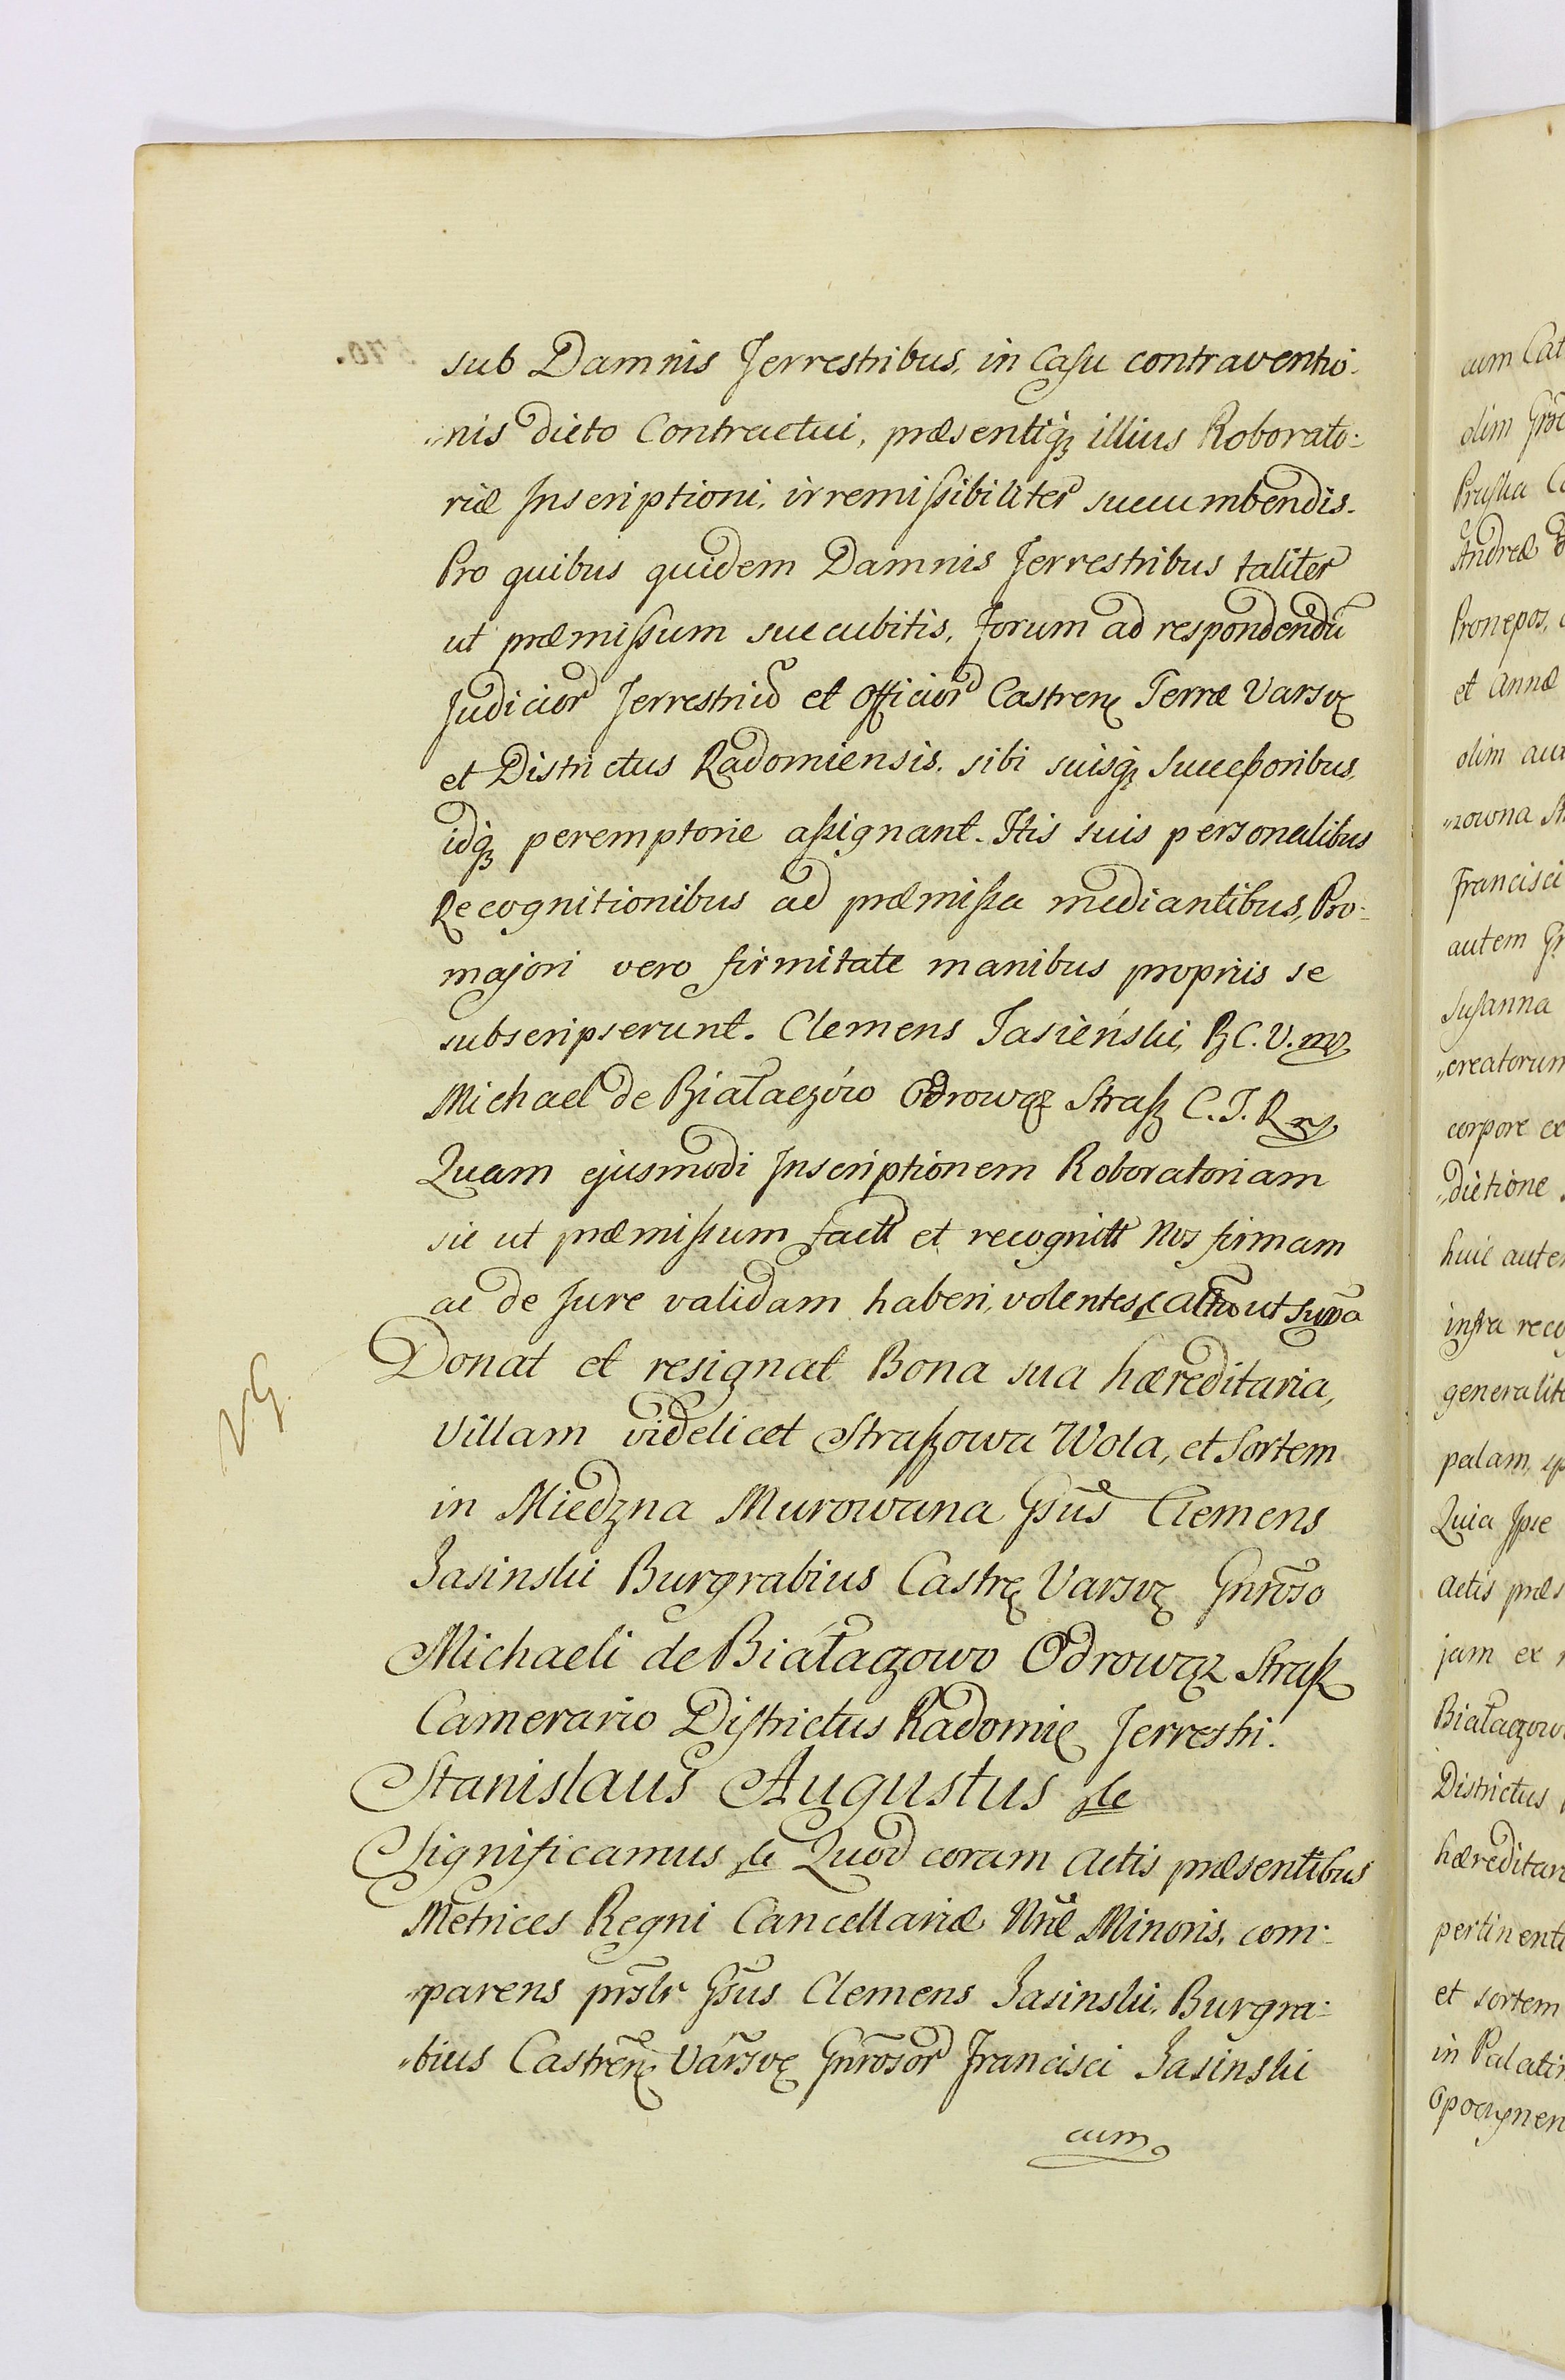 sub Damnis Terrestribus, in Casu contraventio-
nis dicto Contractui, præsentiq3 illius Roborato-
riæ Inscriptioni, irremissibiliter succumbendis.
Pro quibus quidem Damnis Terrestribus taliter
ut præmissum succubitis, forum ad respondendũ
Judicior Terrestriũ et Officior Castren Terræ Varsv
et Districtus Radomiensis, sibi suisq3 Successoribus,
idq3 peremptorie assignant. His suis personalibus
Recognitionibus ad præmissa mediantibus, Pro
majori vero firmitate manibus propriis se
subscripserunt. Clemens Jasieński, B. C. V. mp
Michael de Białaczów Odrowąz Strasz C. T. R mp
Quam ejusmodi Inscriptionem Roboratoriam
sic ut præmissum factt et recognitt Nos firmam
ac de Jure validam haberi, volentes &c ut supra
Donat et resignat Bona sua hæreditaria,
Villam videlicet Straszowa Wola, et Sortem
in Miedzna Murowana Gsũs Clemens
Jasinski Burgrabius Castre Varsv Gnrõso
Michaeli de Białaczowo Odrowąz Strasz
Camerario Districtus Radomie Terrestri.
N. G.
Stanislaus Augustus &c
Significamus &c Quod coram Actis præsentibus
Metrices Regni Cancellariæ Nræ Minoris, com-
parens prslr Gsũs Clemens Jasinski, Burgra-
bius Castren Varsv Gnrosor Francisci Jasinski
cum
cum Cat
olim
Andreæ
Pronepos,
et Annæ
olim
rowna
Francisci
autem
Susanna
creatorum
corpore ex
dictione
huic autem
infra reco
generalite
palam,
Quia Ipse
Actis præs
jam ex
Białaczow
Districtus
hæreditari
pertinenti
et sortem
in Palatin
Opocynen